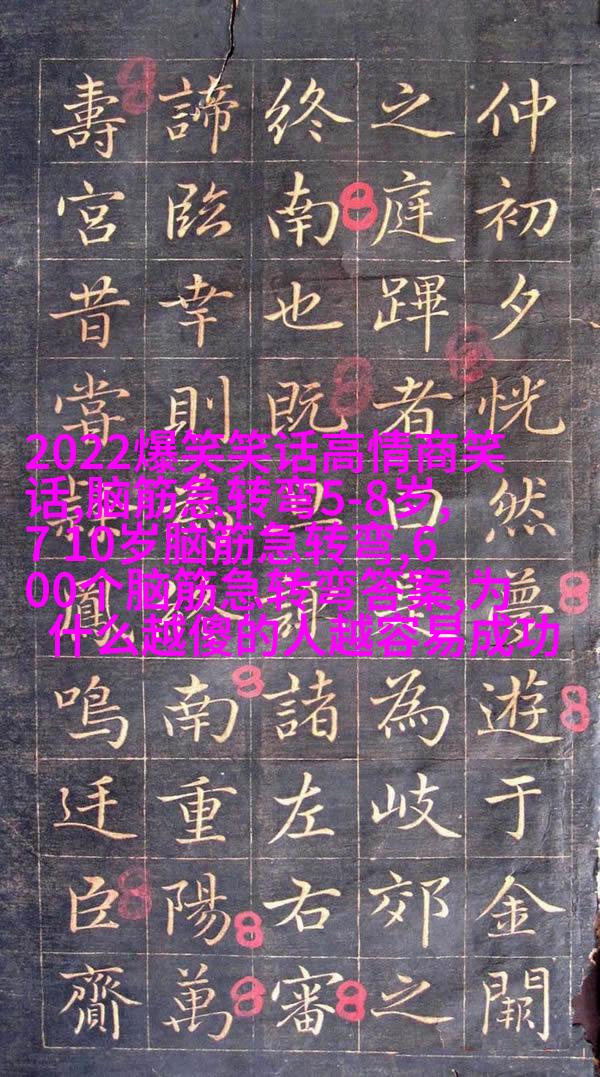 仲初夕恍然夢遊于金闕
之庭蹕者曰為岐郊之
終南也既旦諸左右審
諦臨幸則南重陽萬
壽宮昔嘗鳳鳴迁臣齎
2022爆笑笑话高情商笑
话,脑筋急转弯5-8岁,
7 10岁脑筋急转弯,6
00个脑筋急转弯答案,为
什么越傻的人越容易成功